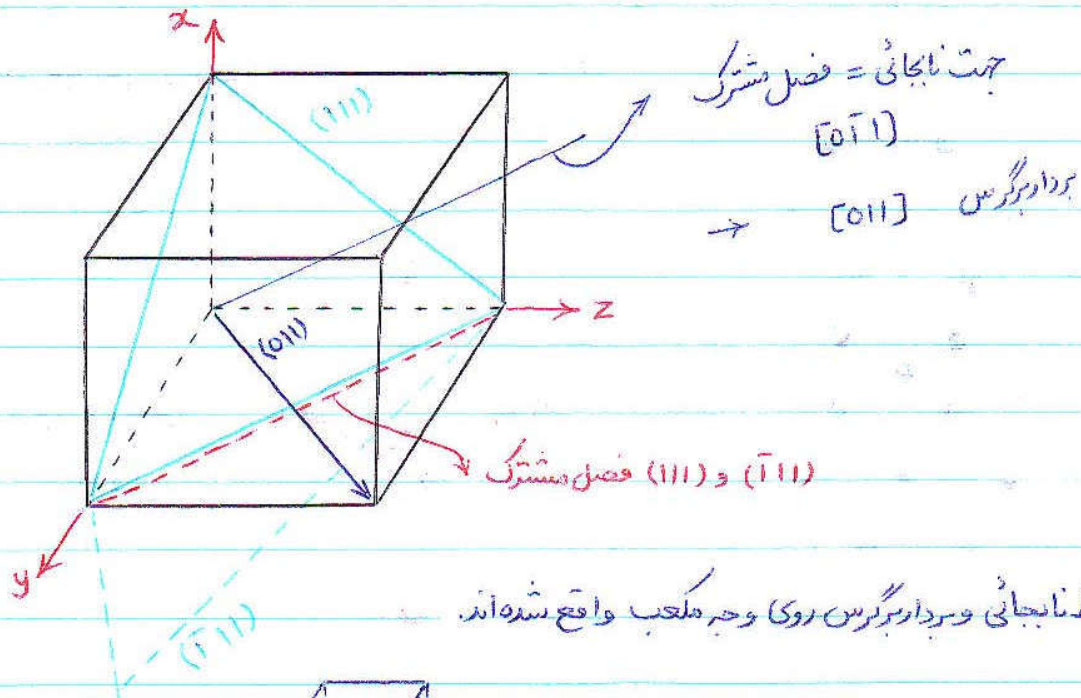 x
(111)
جهت نابجائی = فصل مشترک
[01̄1]
بردار برگرس [011] →
z
(011)
فصل مشترک (111) و (1̄11)
y
(1̄11)
نابجائی و بردار برگرس روی وجه مکعب واقع شده‌اند.